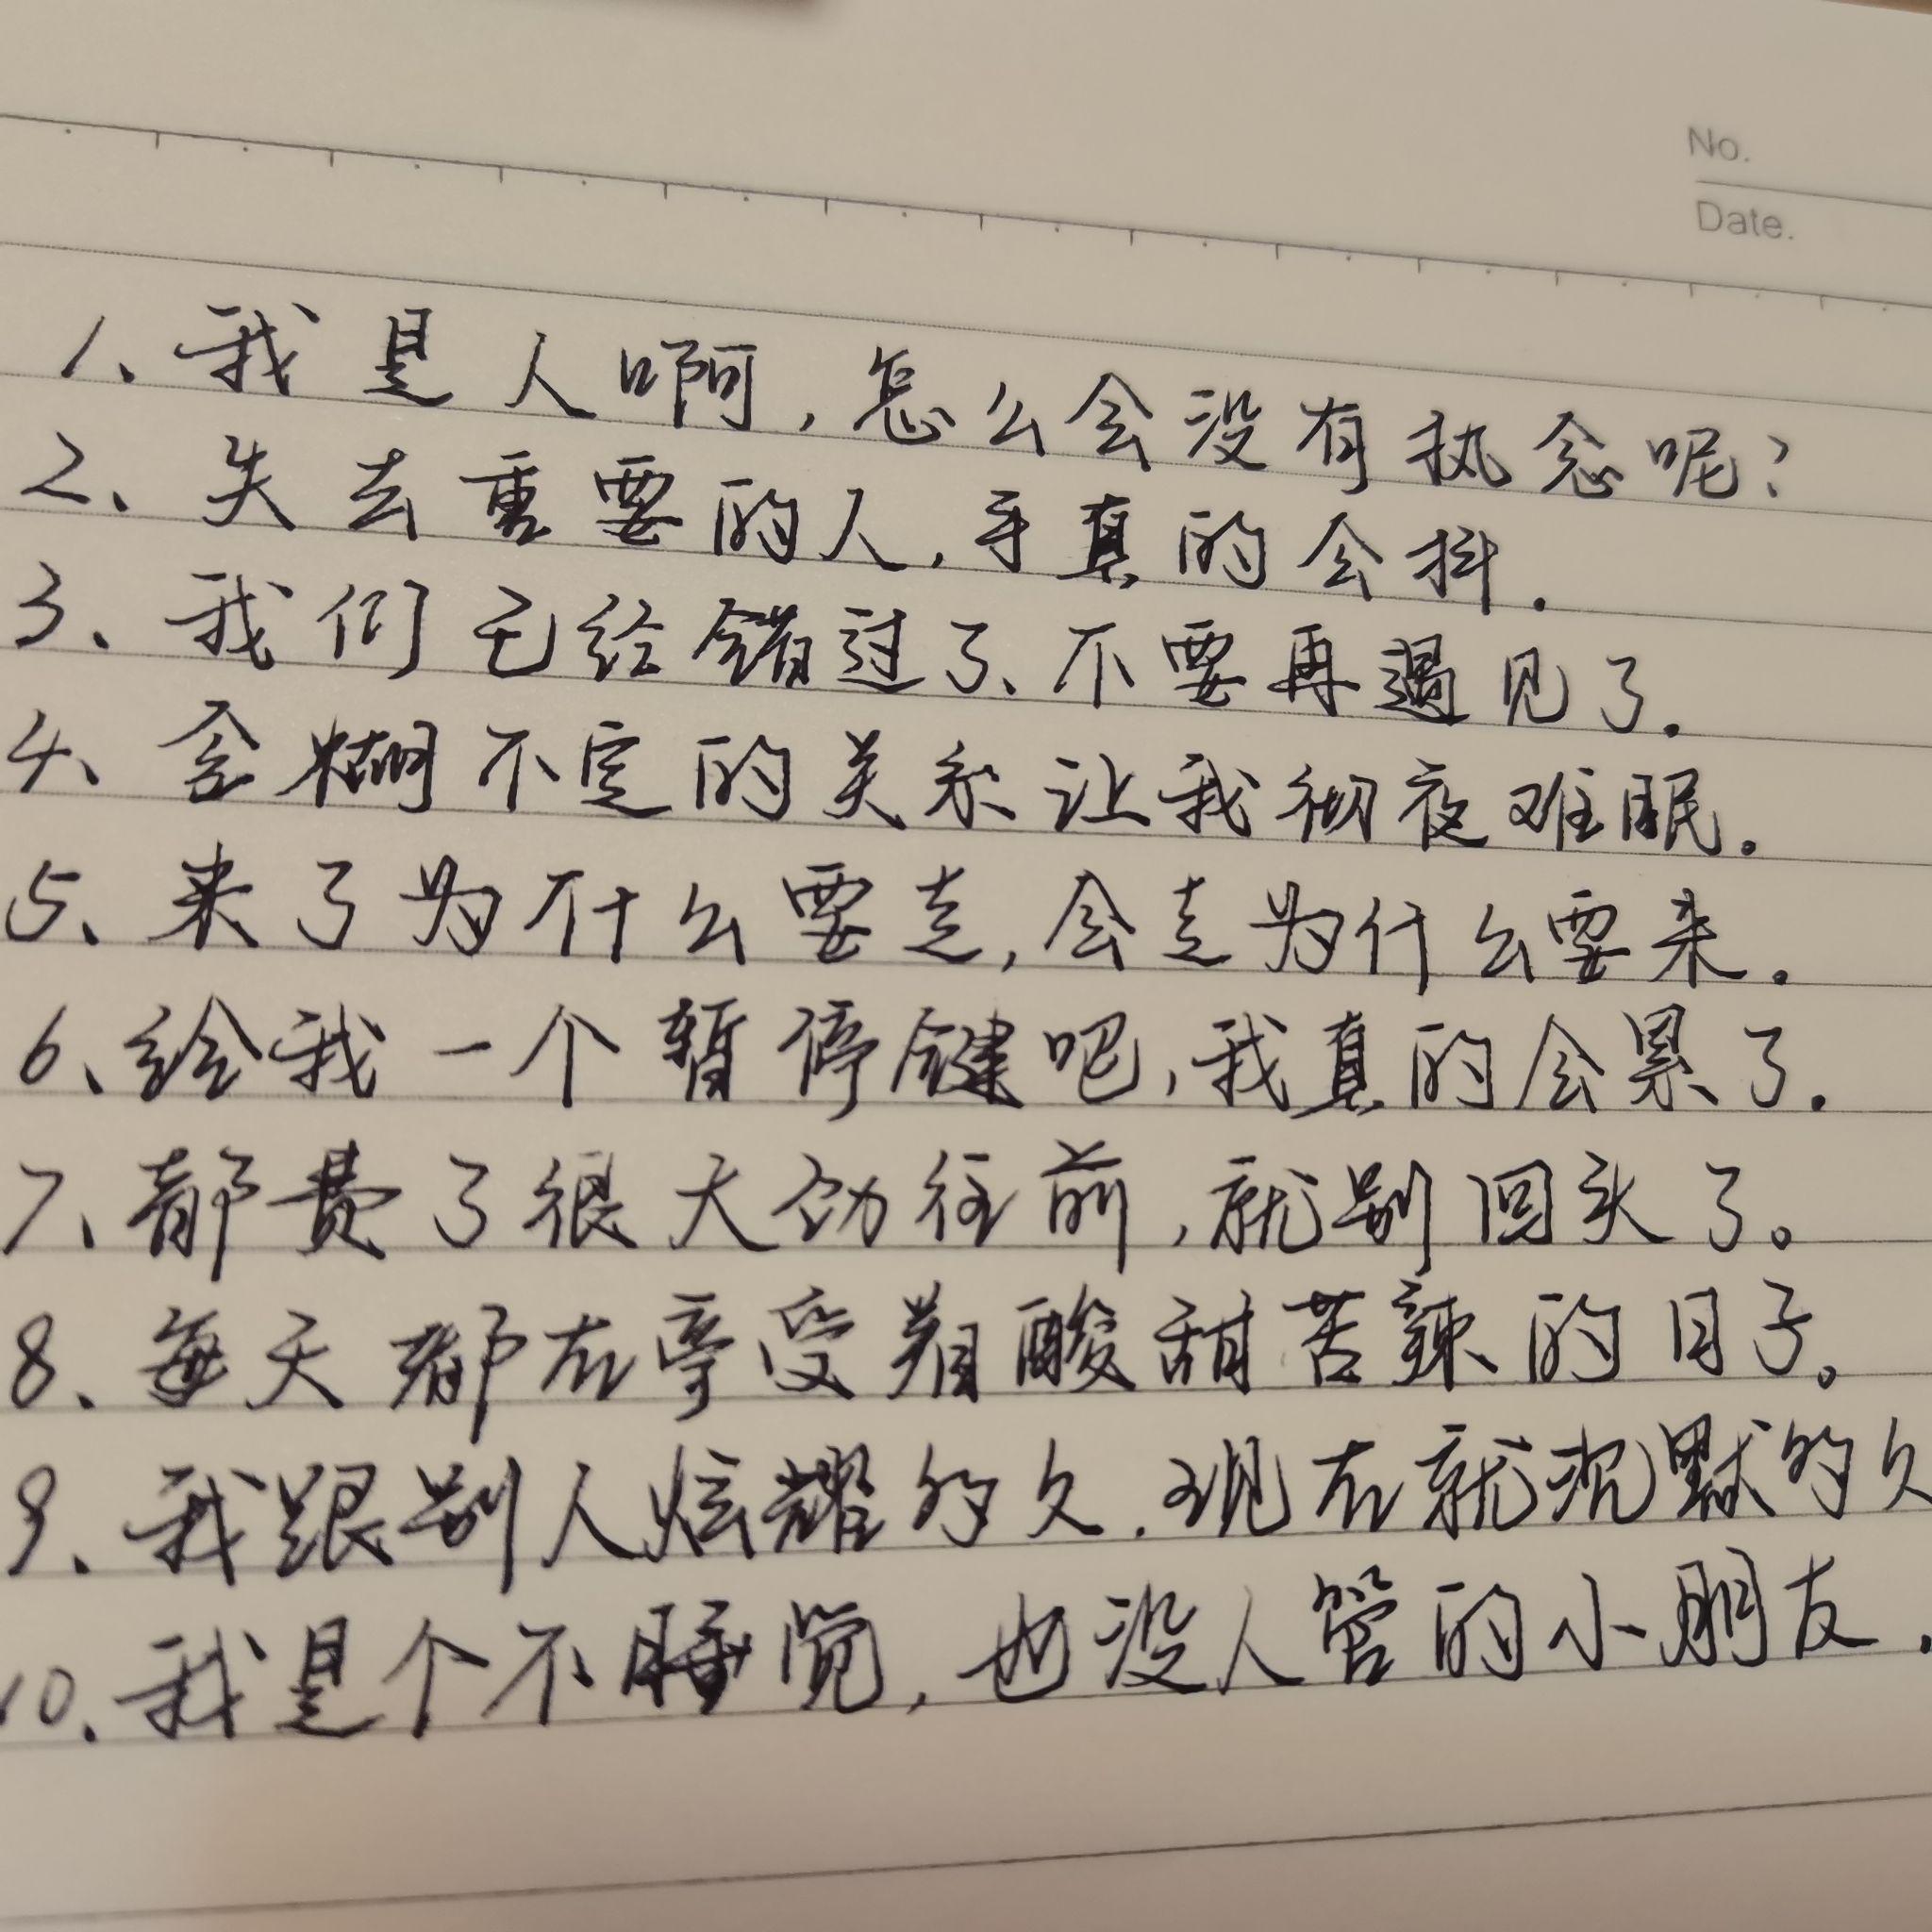 No.
Date.
1、我是人啊,怎么会没有执念呢?
2、失去重要的人,手真的会抖.
3、我们已经错过了、不要再遇见了.
4、含糊不定的关系让我彻夜难眠.
5、来了为什么要走,会走为什么要来.
6、给我一个暂停键吧,我真的会累了.
7、都费了很大劲往前,就别回头了。
8、每天都在享受着酸甜苦辣的日子。
9、我跟别人炫耀的久.现在就沉默的久
10.我是个不睡觉,也没人管的小朋友.